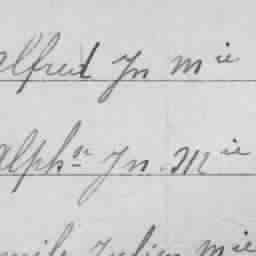 Alfred Jn Mie
Alphse Jn Mie
Emile Julien Mie